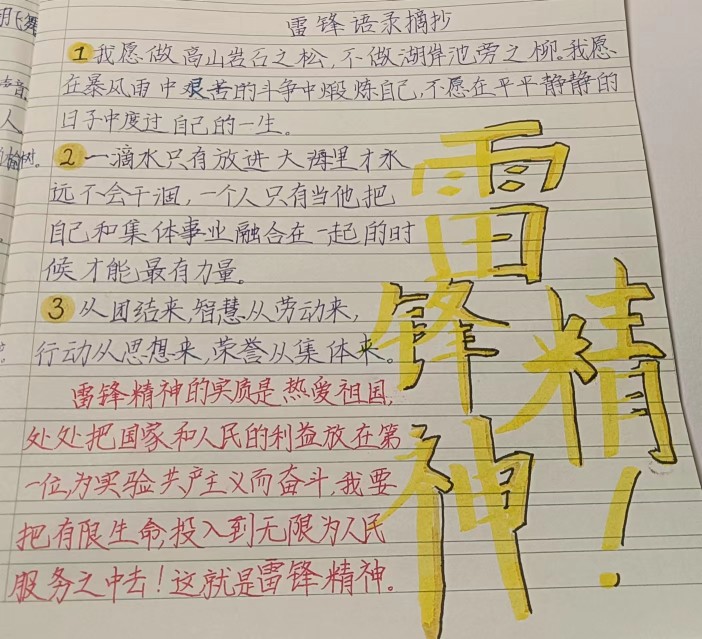 雷锋语录摘抄
1 我愿做高山岩石之松,不做湖岸池旁之柳。我愿
在暴风雨中艰苦的斗争中煅炼自己,不愿在平平静静的
日子中度过自己的一生。
2 一滴水只有放进大海里才永
远不会干涸,一个人只有当他把
自己和集体事业融合在一起的时
候才能最有力量。
3 从团结来,智慧从劳动来,
行动从思想来,荣誉从集体来。
雷锋精神的实质是热爱祖国,
处处把国家和人民的利益放在第
一位,为实验共产主义而奋斗,我要
把有限生命,投入到无限为人民
服务之中去!这就是雷锋精神。
雷锋精神!
声音
人
榆树。